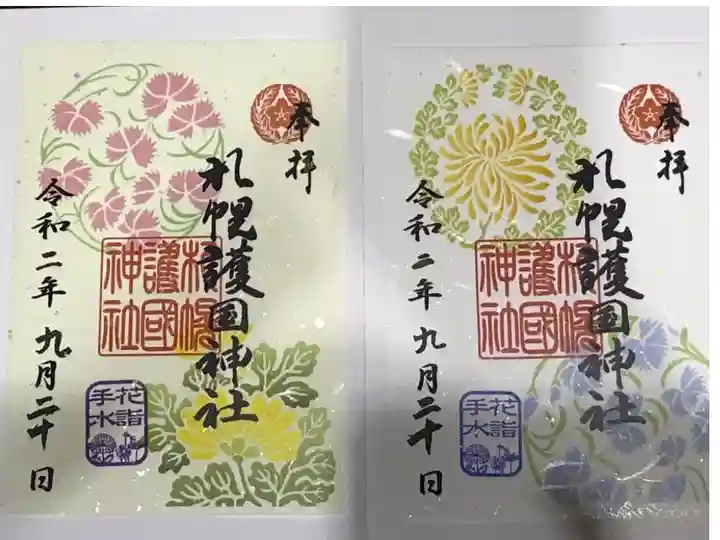 奉拝
札幌護国神社
札幌
護國
神社
令和二年九月二十日
花詣
手水
奉拝
札幌護国神社
札幌
護國
神社
令和二年九月二十日
花詣
手水